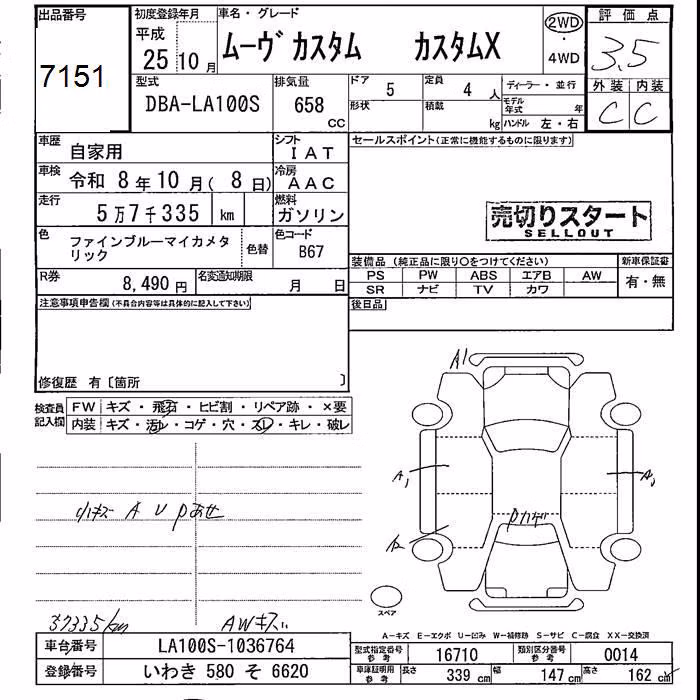 出品番号
7151
初度登録年月
平成
25 10 月
車名・グレード
ムーヴ カスタム カスタムX
2WD
・
4WD
評価点
3.5
外装 内装
C C
型式
DBA-LA100S
排気量
658
CC
ドア 5
定員 4 人
形状
積載 kg
ディーラー・並行
モデル年式 年
ハンドル 左・右
車歴 自家用
シフト IAT
車検 令和 8年10月(8日)
冷房 AAC
走行 5万7千335 km
燃料 ガソリン
色 ファインブルーマイカメタリック
色替
色コード B67
R券 8,490 円
名変通知期限 月 日
セールスポイント(正常に機能するものに限ります)
売切りスタート
SELLOUT
装備品 (純正品に限り○をつけてください)
新車保証書
PS PW ABS エアB AW
有・無
SR ナビ TV カワ
後日品
注意事項申告欄(不具合内容等は具体的に記入して下さい)
修復歴 有〔箇所 〕
検査員記入欄
FW キズ・飛石・ヒビ割・リペア跡・×要
内装 キズ・汚レ・コゲ・穴・スレ・キレ・破レ
小キズ A U Pあせ
57335km
AWキズ
A1
A1
Pカゲ
スペア
A-キズ E-エクボ U-凹み W-補修跡 S-サビ C-腐食 XX-交換済
車台番号 LA100S-1036764
登録番号 いわき 580 そ 6620
型式指定番号 参考 16710
類別区分番号 参考 0014
車庫証明用 参考
長さ 339 cm
幅 147 cm
高さ 162 cm